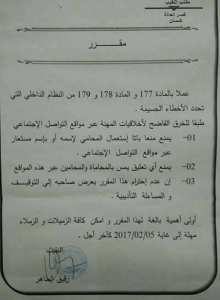 مكتب النقيب
قصر العدالة
تلمسان
مقـــرر
عملا بالمادة 177 و المادة 178 و 179 من النظام الداخلي التي
تحدد الأخطاء الجسيمة .
طبقا للخرق الفاضح لأخلاقيات المهنة عبر مواقع التواصل الإجتماعي
01– يمنع منعا باتا إستعمال المحامي لإسمه أو بإسم مستعار
عبر مواقع التواصل الإجتماعي .
02– يمنع أي تعليق يمس بالمحاماة والمحامين عبر هذه المواقع
03– إن عدم إحترام هذا المقرر يعرض صاحبه إلى التوقيـف
و المساءلة التأديبية .
أولي أهمية بالغة لهذا المقرر و امكن كافة الزميلات و الزملاء
مهلة إلى غاية 2017/02/05 كآخر أجل .
النقيب
الطاهر